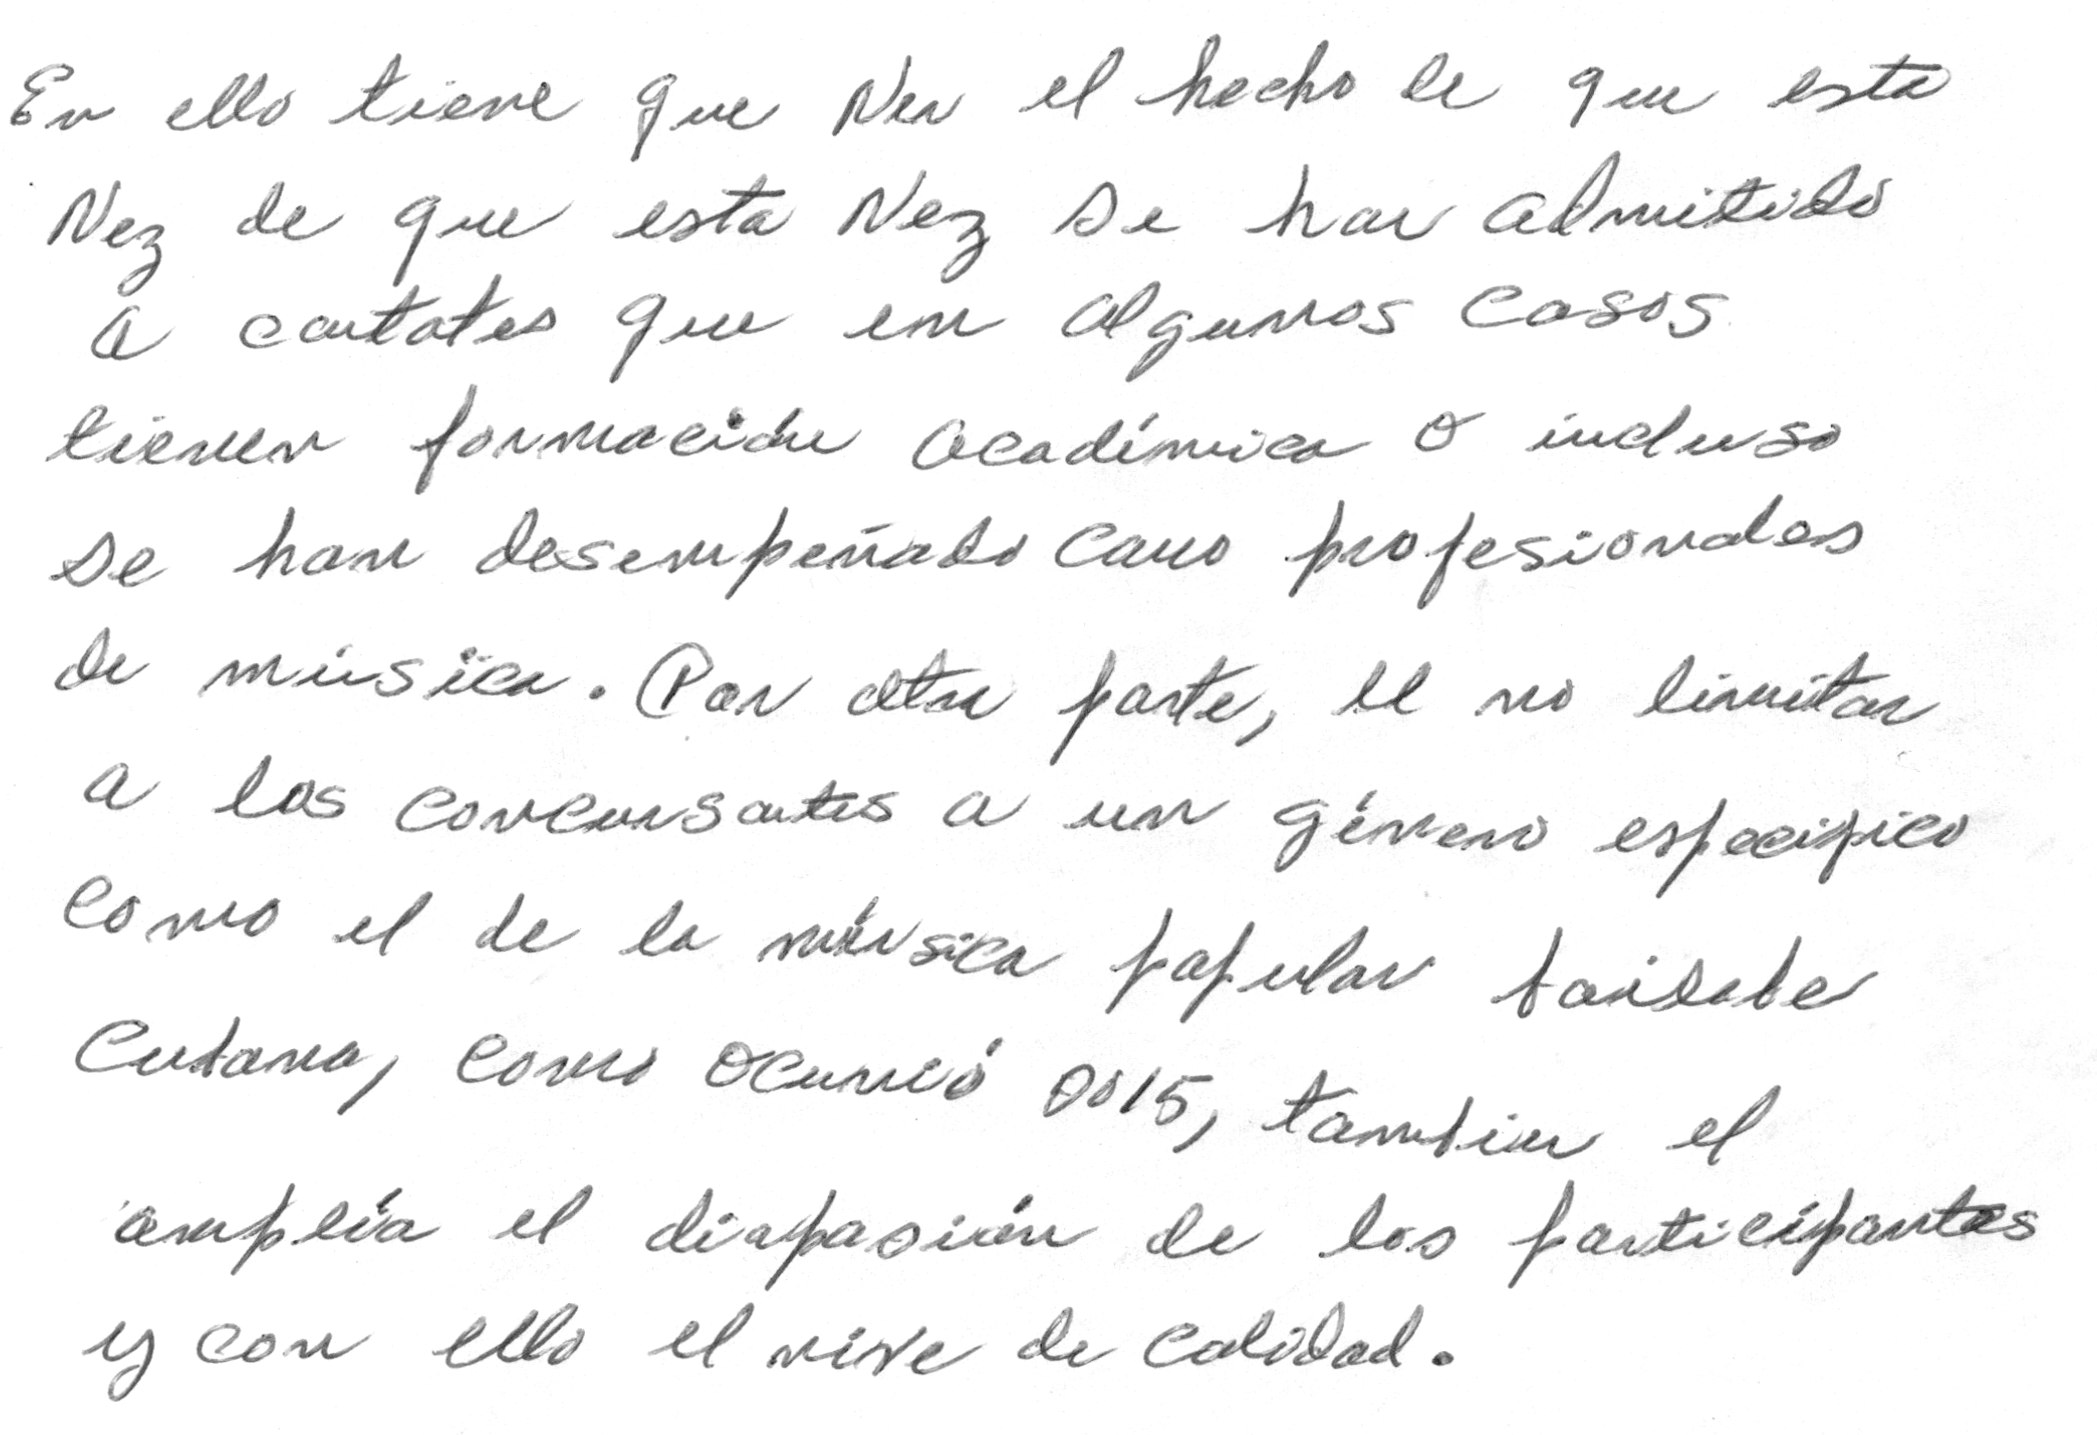 En ello tiene que ver el hecho de que esta
vez de que esta vez se han admitido
a cantates que en algunos casos
tienen formación académica o incluso
se han desempeñado como profesionales
de música. Por otra parte, el no limitar
a los concursantes a un género específico
como el de la música popular bailable
cubana, como ocurrió 2015, tambien el
amplía el diapasión de los participantes
y con ello el nive de calidad.